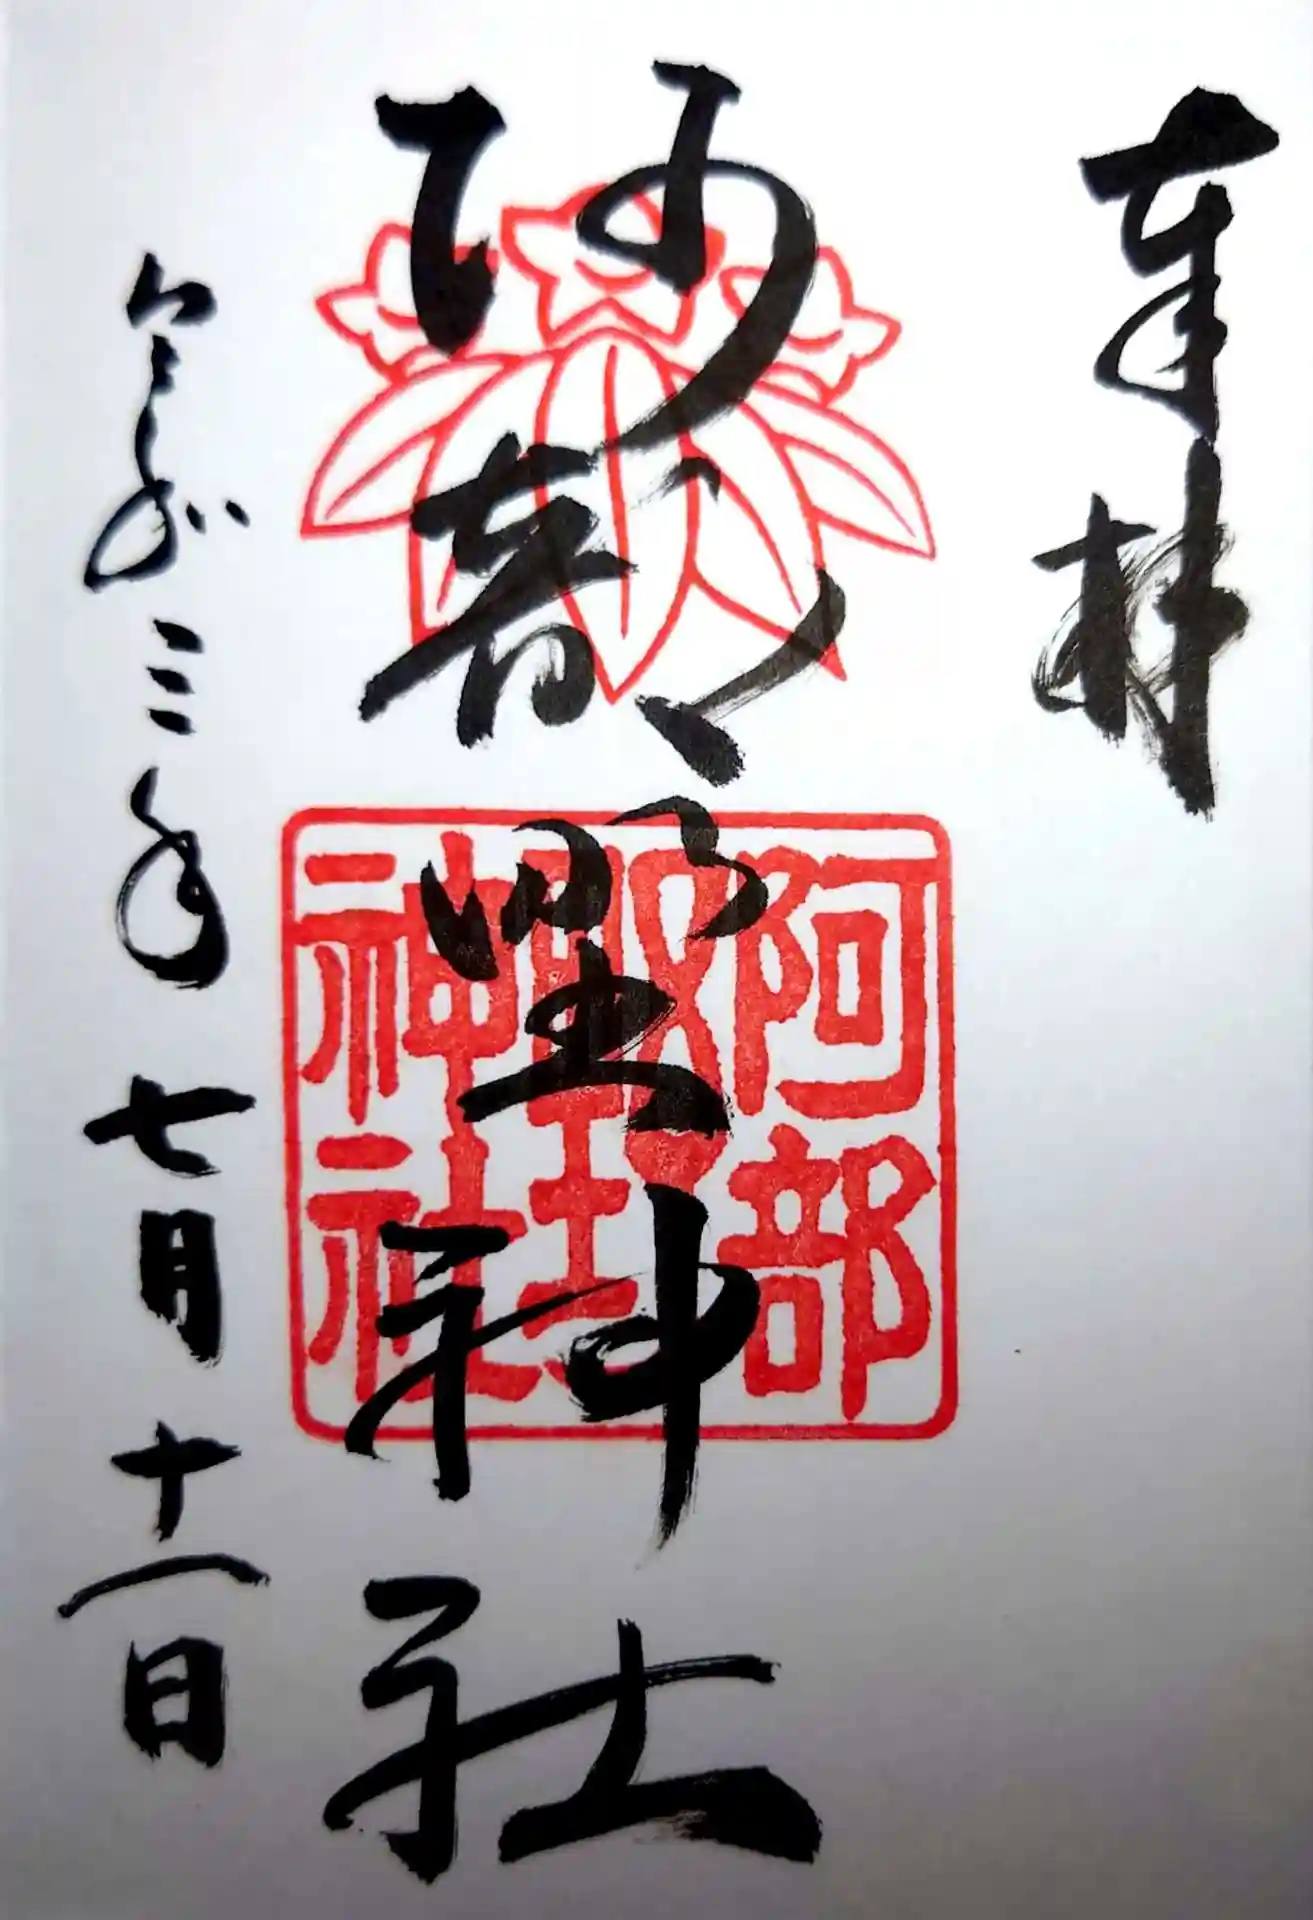 奉拝
阿部野神社
令和三年七月十一日
阿部
野
神社